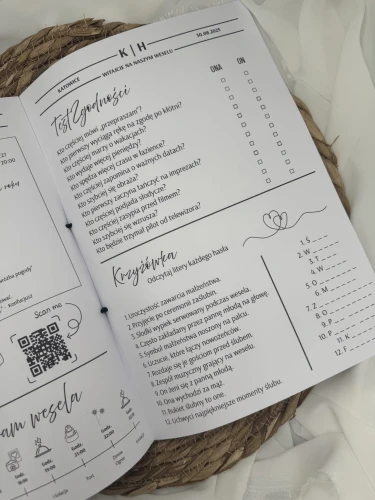 K | H
KATOWICE
WITAJCIE NA NASZYM WESELU
30.08.2025
Test Zgodności
ONA
ON
Kto częściej mówi „przepraszam"?
Kto pierwszy wyciąga rękę na zgodę po kłótni?
Kto częściej marzy o wakacjach?
Kto wydaje więcej pieniędzy?
Kto spędza więcej czasu w łazience?
Kto częściej zapomina o ważnych datach?
Kto szybciej się obraża?
Kto pierwszy zaczyna tańczyć na imprezach?
Kto częściej podjada słodycze?
Kto częściej zasypia przed filmem?
Kto szybciej się wzrusza?
Kto będzie trzymał pilot od telewizora?
Krzyżówka
Odczytaj litery każdego hasła
1. Uroczystość zawarcia małżeństwa.
2. Przyjęcie po ceremonii zaślubin.
3. Słodki wypiek serwowany podczas wesela.
4. Często zakładany przez pannę młodą na głowę.
5. Symbol małżeństwa noszony na palcu.
6. Uczucie, które łączy nowożeńców.
7. Rozdaje się je gościom przed ślubem.
8. Zespół muzyczny grający na weselu.
9. On żeni się z panną młodą.
10. Ona wychodzi za mąż.
11. Bukiet ślubny to one.
12. Uchwyci najpiękniejsze momenty ślubu.
1. Ś _ _ _
2. W _ _ _ _ _
3. T _ _ _
4. W _ _ _ _
5. O _ _ _ _ _ _
6. M _ _ _ _ _
7. Z _ _ _ _ _ _ _ _ _
8. O _ _ _ _ _ _ _
9. P _ _ _ _ _ _
10. P _ _ _ _ _ _ _
11. K _ _ _ _ _
12. F _ _ _ _ _ _ _
Scan me
am wesela
Godz.
18:00
Godz.
19:00
Godz.
21:00
Godz.
22:00
Godz.
Kolacja
Tort
Zimne
ognie